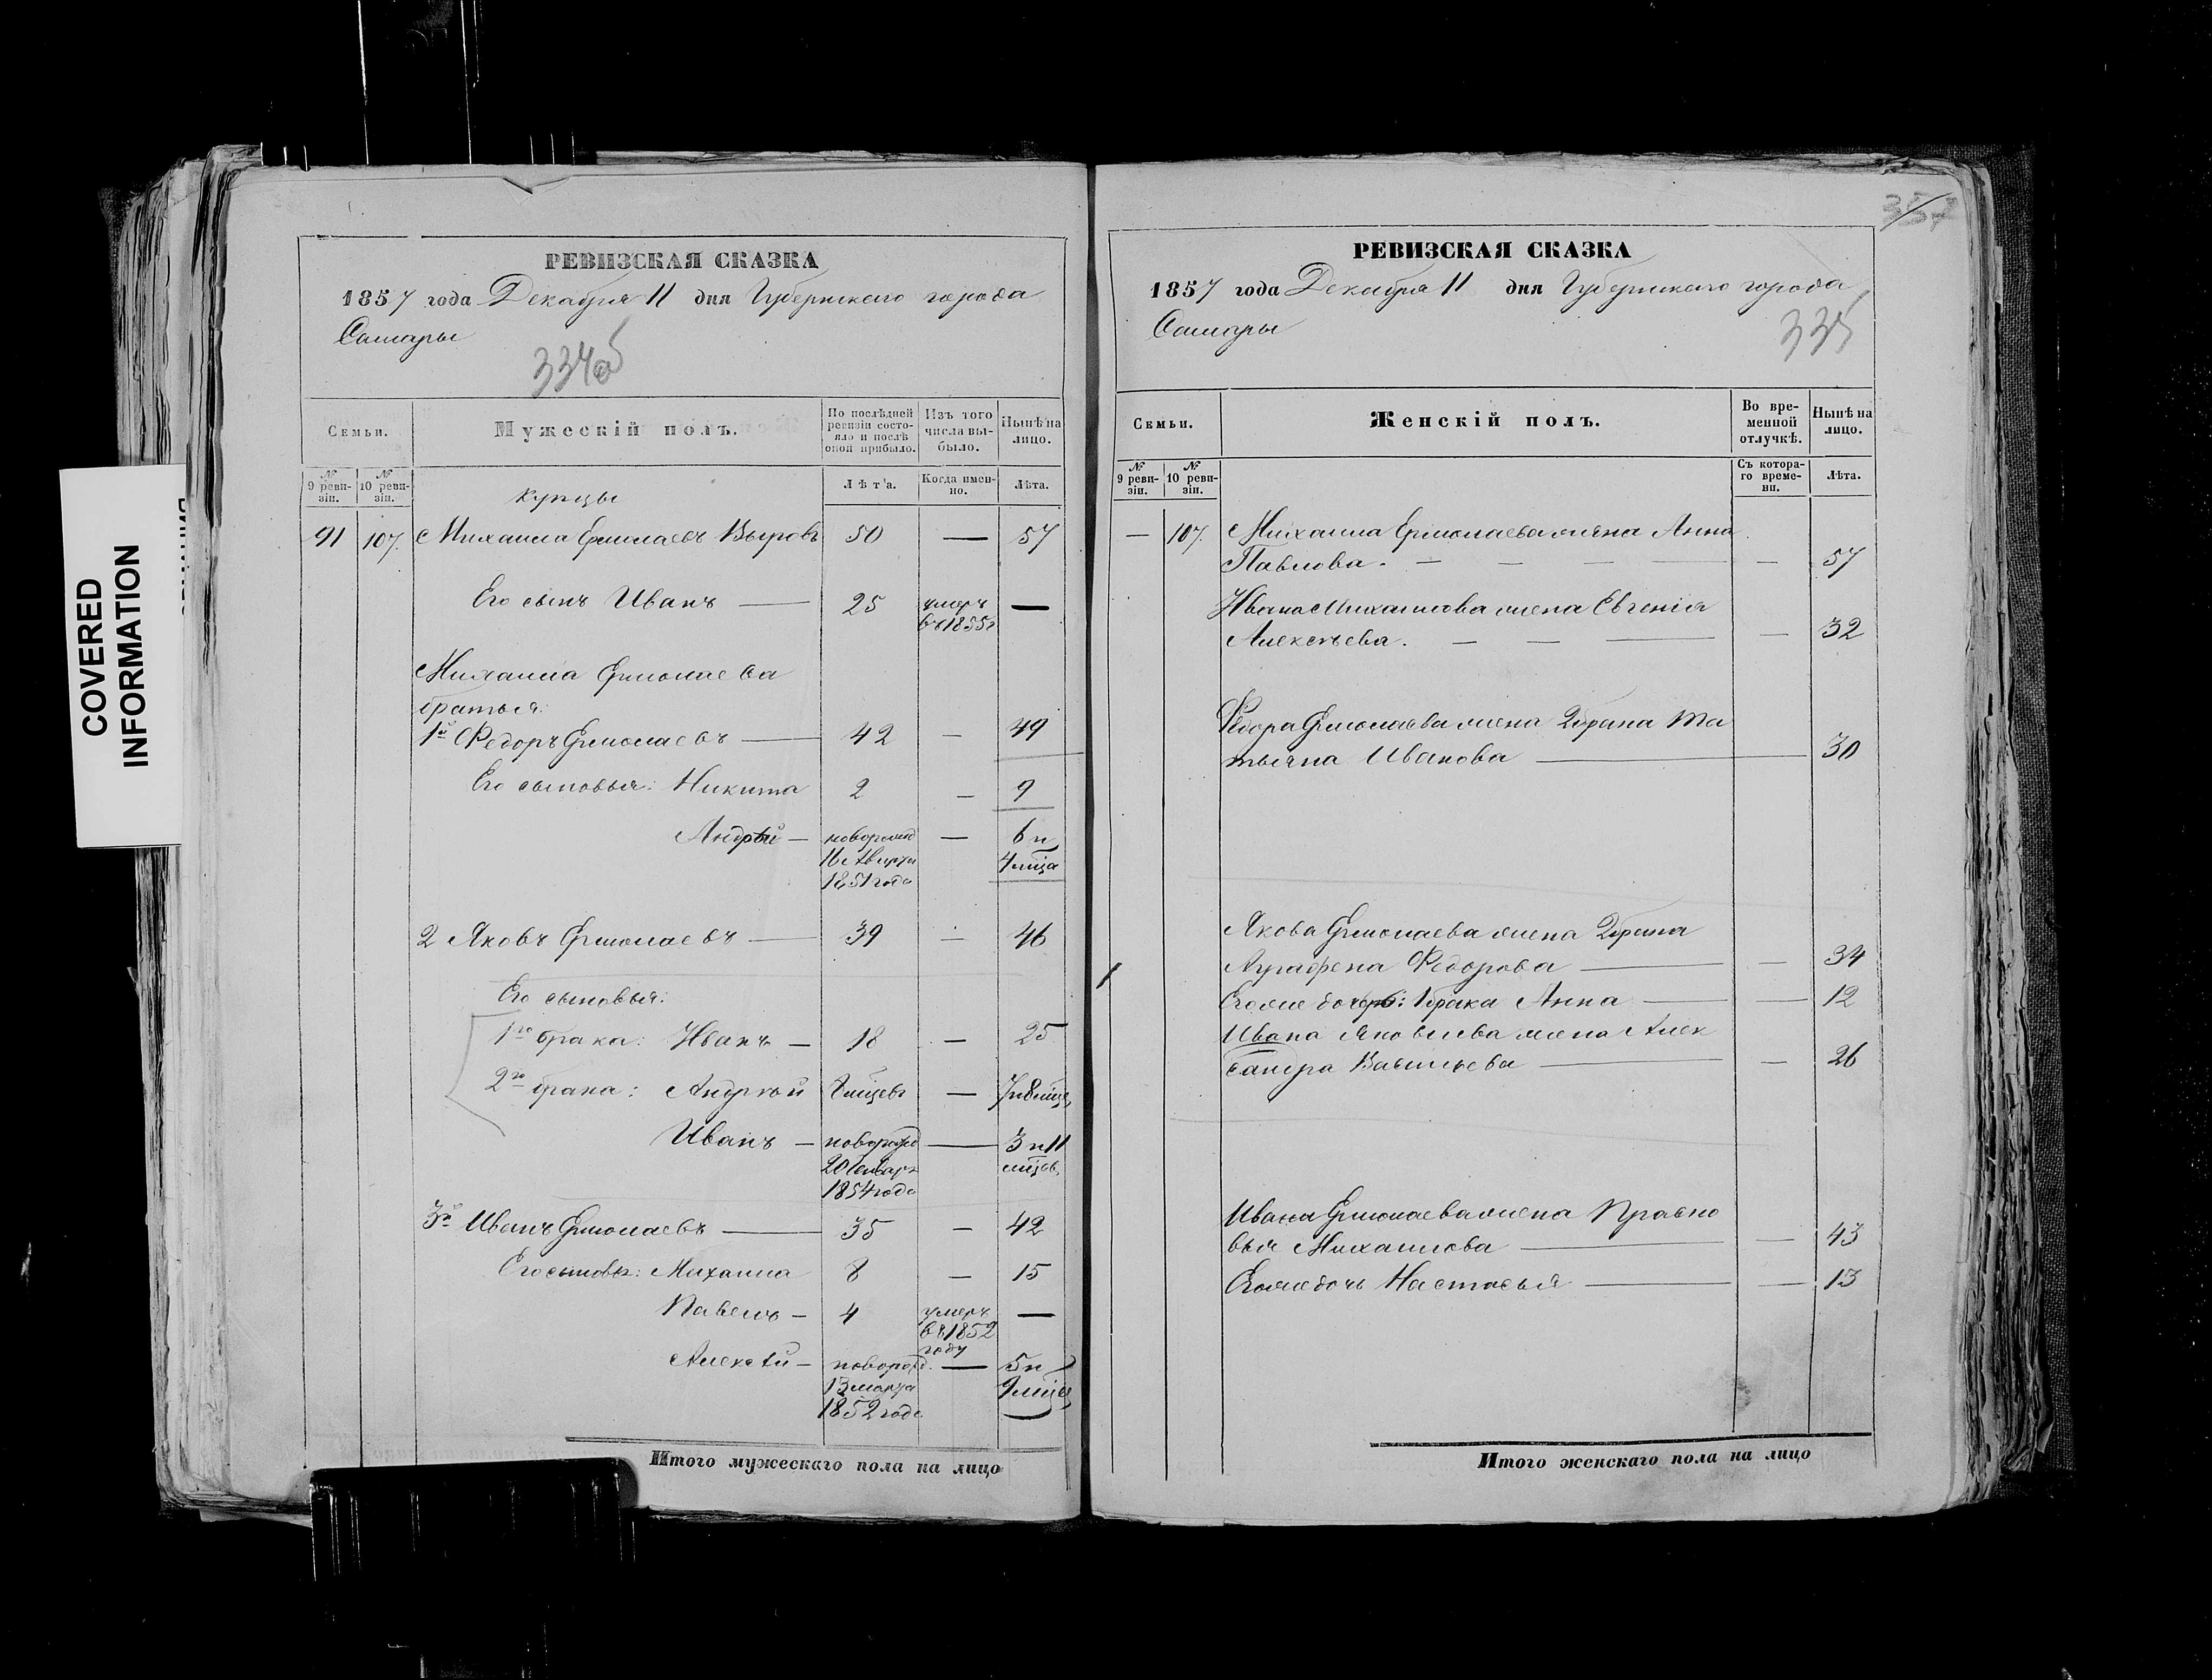 COVERED
INFORMATION
РЕВИЗСКАЯ СКАЗКА
1857 года Декабря 11 дня Губернскаго города
Самары
334об
Семьи.
Мужескій полъ.
По послѣдней ревизіи состояло и послѣ оной прибыло.
Изъ того числа выбыло.
Нынѣ на лицо.
№ 9 ревизіи.
№ 10 ревизіи.
Лѣта.
Когда именно.
Лѣта.
Купцы
91 107. Михаила Ермолаевъ Выровъ 50 — 57
Его сынъ Иванъ — 25 умеръ въ 1855г —
Михаила Ермолаева
братья:
1й Федоръ Ермолаевъ — 42 — 49
Его сыновья: Никита 2 — 9
Андрей — новорожд — 6 и
16 Августа 4 мѣца
1851 года
2 Яковъ Ермолаевъ — 39 — 46
Его сыновья:
1го брака: Иванъ — 18 — 25
2го брака: Андрей 8 мѣцевъ — 7 и 8 мѣце
Иванъ — новорожд — 3 и 11
20 Генваря мѣцев
1854 года
3й Иванъ Ермолаевъ — 35 — 42
Его сыновья: Михаила 8 — 15
Павелъ — 4 умеръ —
въ 1852
году
Алексѣй — новорожд. — 5 и
13 марта 9 мѣце
1852 года
Итого мужескаго пола на лицо
337
РЕВИЗСКАЯ СКАЗКА
1857 года Декабря 11 дня Губернскаго города
Самары
335
Семьи.
Женскій полъ.
Во временной отлучкѣ.
Нынѣ на лицо.
№ 9 ревизіи.
№ 10 ревизіи.
Съ котораго времени.
Лѣта.
— 107. Михаила Ермолаева жена Анна
Павлова. — — — — — 57
Ивана Михаилова жена Евгенія
Алексѣева. — — — — 32
Федора Ермолаева жена 2 брака Та
тьяна Иванова — 30
Якова Ермолаева жена 2 брака
Аграфена Федорова — — 34
Его же дочерь: 1 брака Анна — — 12
Ивана Яковлева жена Алек
сандра Васильева — — 26
Ивана Ермолаева жена Праско
вья Михаилова — — 43
Его же дочь Настасья — — 13
Итого женскаго пола на лицо